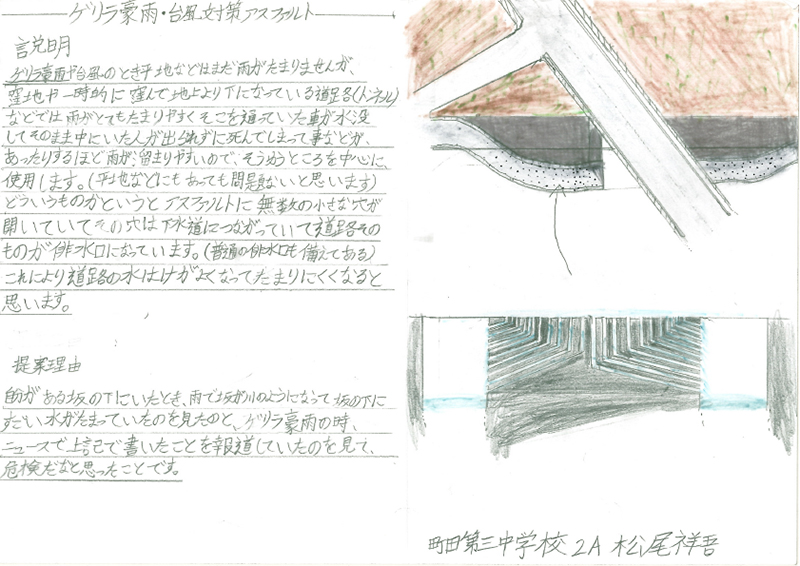 ゲリラ豪雨・台風対策アスファルト
説明
ゲリラ豪雨や台風のとき平地などはまだ雨がたまりませんが、
窪地や一時的に窪んで地上より下になっている道路(トンネル)
などでは雨がとてもたまりやすくそこを通っていた車が水没
してそのまま中にいた人が出られずに死んでしまって事などが、
あったりするほど雨が、留まりやすいので、そうゆうところを中心に、
使用します。(平地などにもあっても問題ないと思います)
どういうものかというとアスファルトに無数の小さな穴が
開いていてその穴は下水道につながっていて道路その
ものが排水口になっています。(普通の排水口も備えてある)
これにより道路の水はけがよくなってたまりにくくなると
思います。
提案理由
自分がある坂の下にいたとき、雨で坂が川のようになって坂の下に
水がたまっていたのを見たのと、ゲリラ豪雨の時、
ニュースで上記で書いたことを報道していたのを見て、
危険だなと思ったことです。
町田第三中学校 2A 松尾祥吾